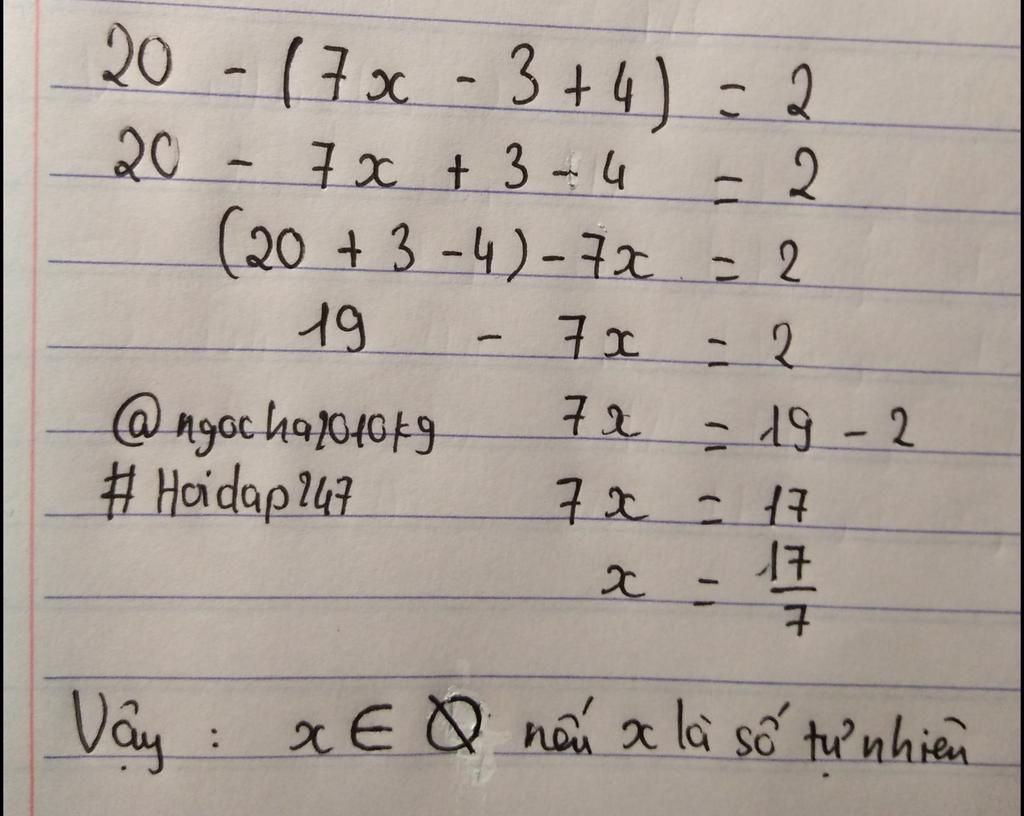 20 - (7x - 3 + 4) = 2
20 - 7x + 3 - 4 = 2
(20 + 3 - 4) - 7x = 2
19 - 7x = 2
@ngocha2010kg 7x = 19 - 2
#Hoidap247 7x = 17
x = 17/7
Vậy : x ∈ ∅ nếu x là số tự nhiên